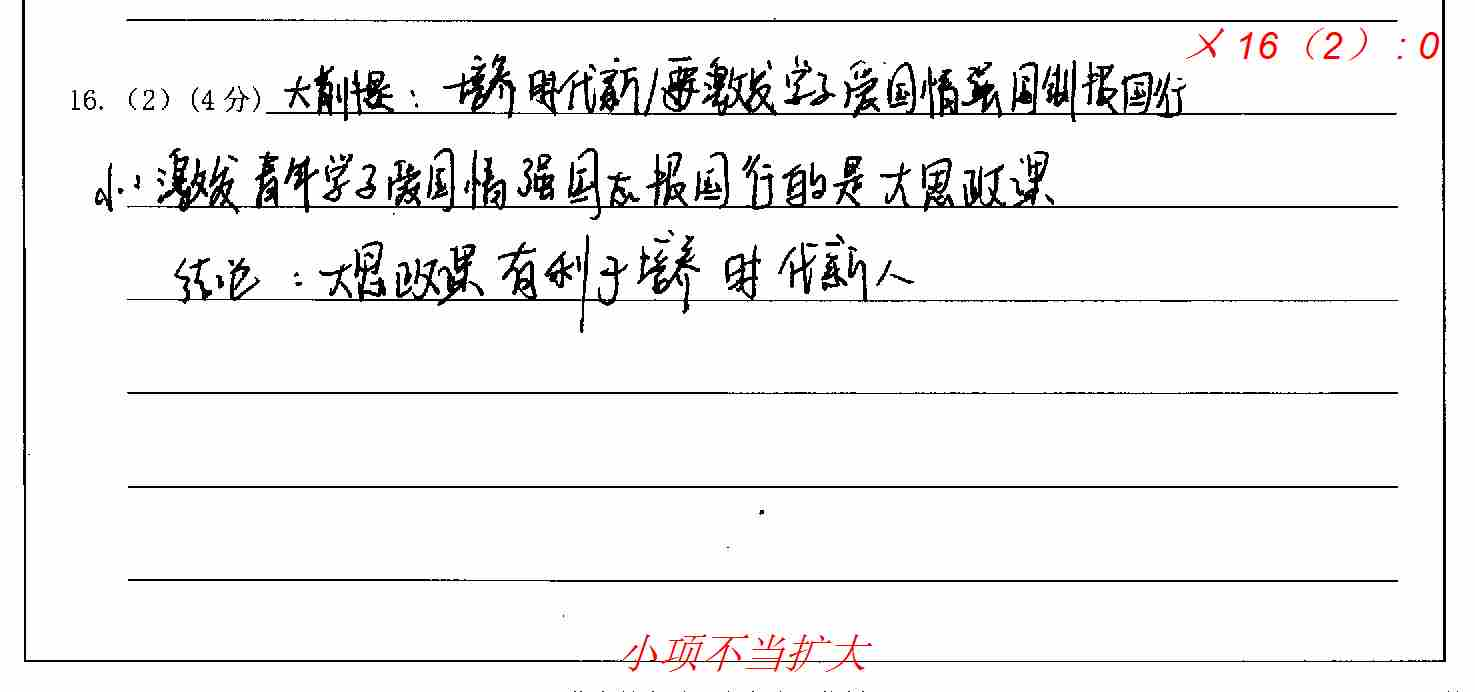 × 16（2）: 0
16.（2）(4 分) 大前提：培养时代新人要激发学子爱国情强国制报国行
小：激发青年学子爱国情强国志报国行的是大思政课
结论：大思政课有利于培养时代新人
小项不当扩大